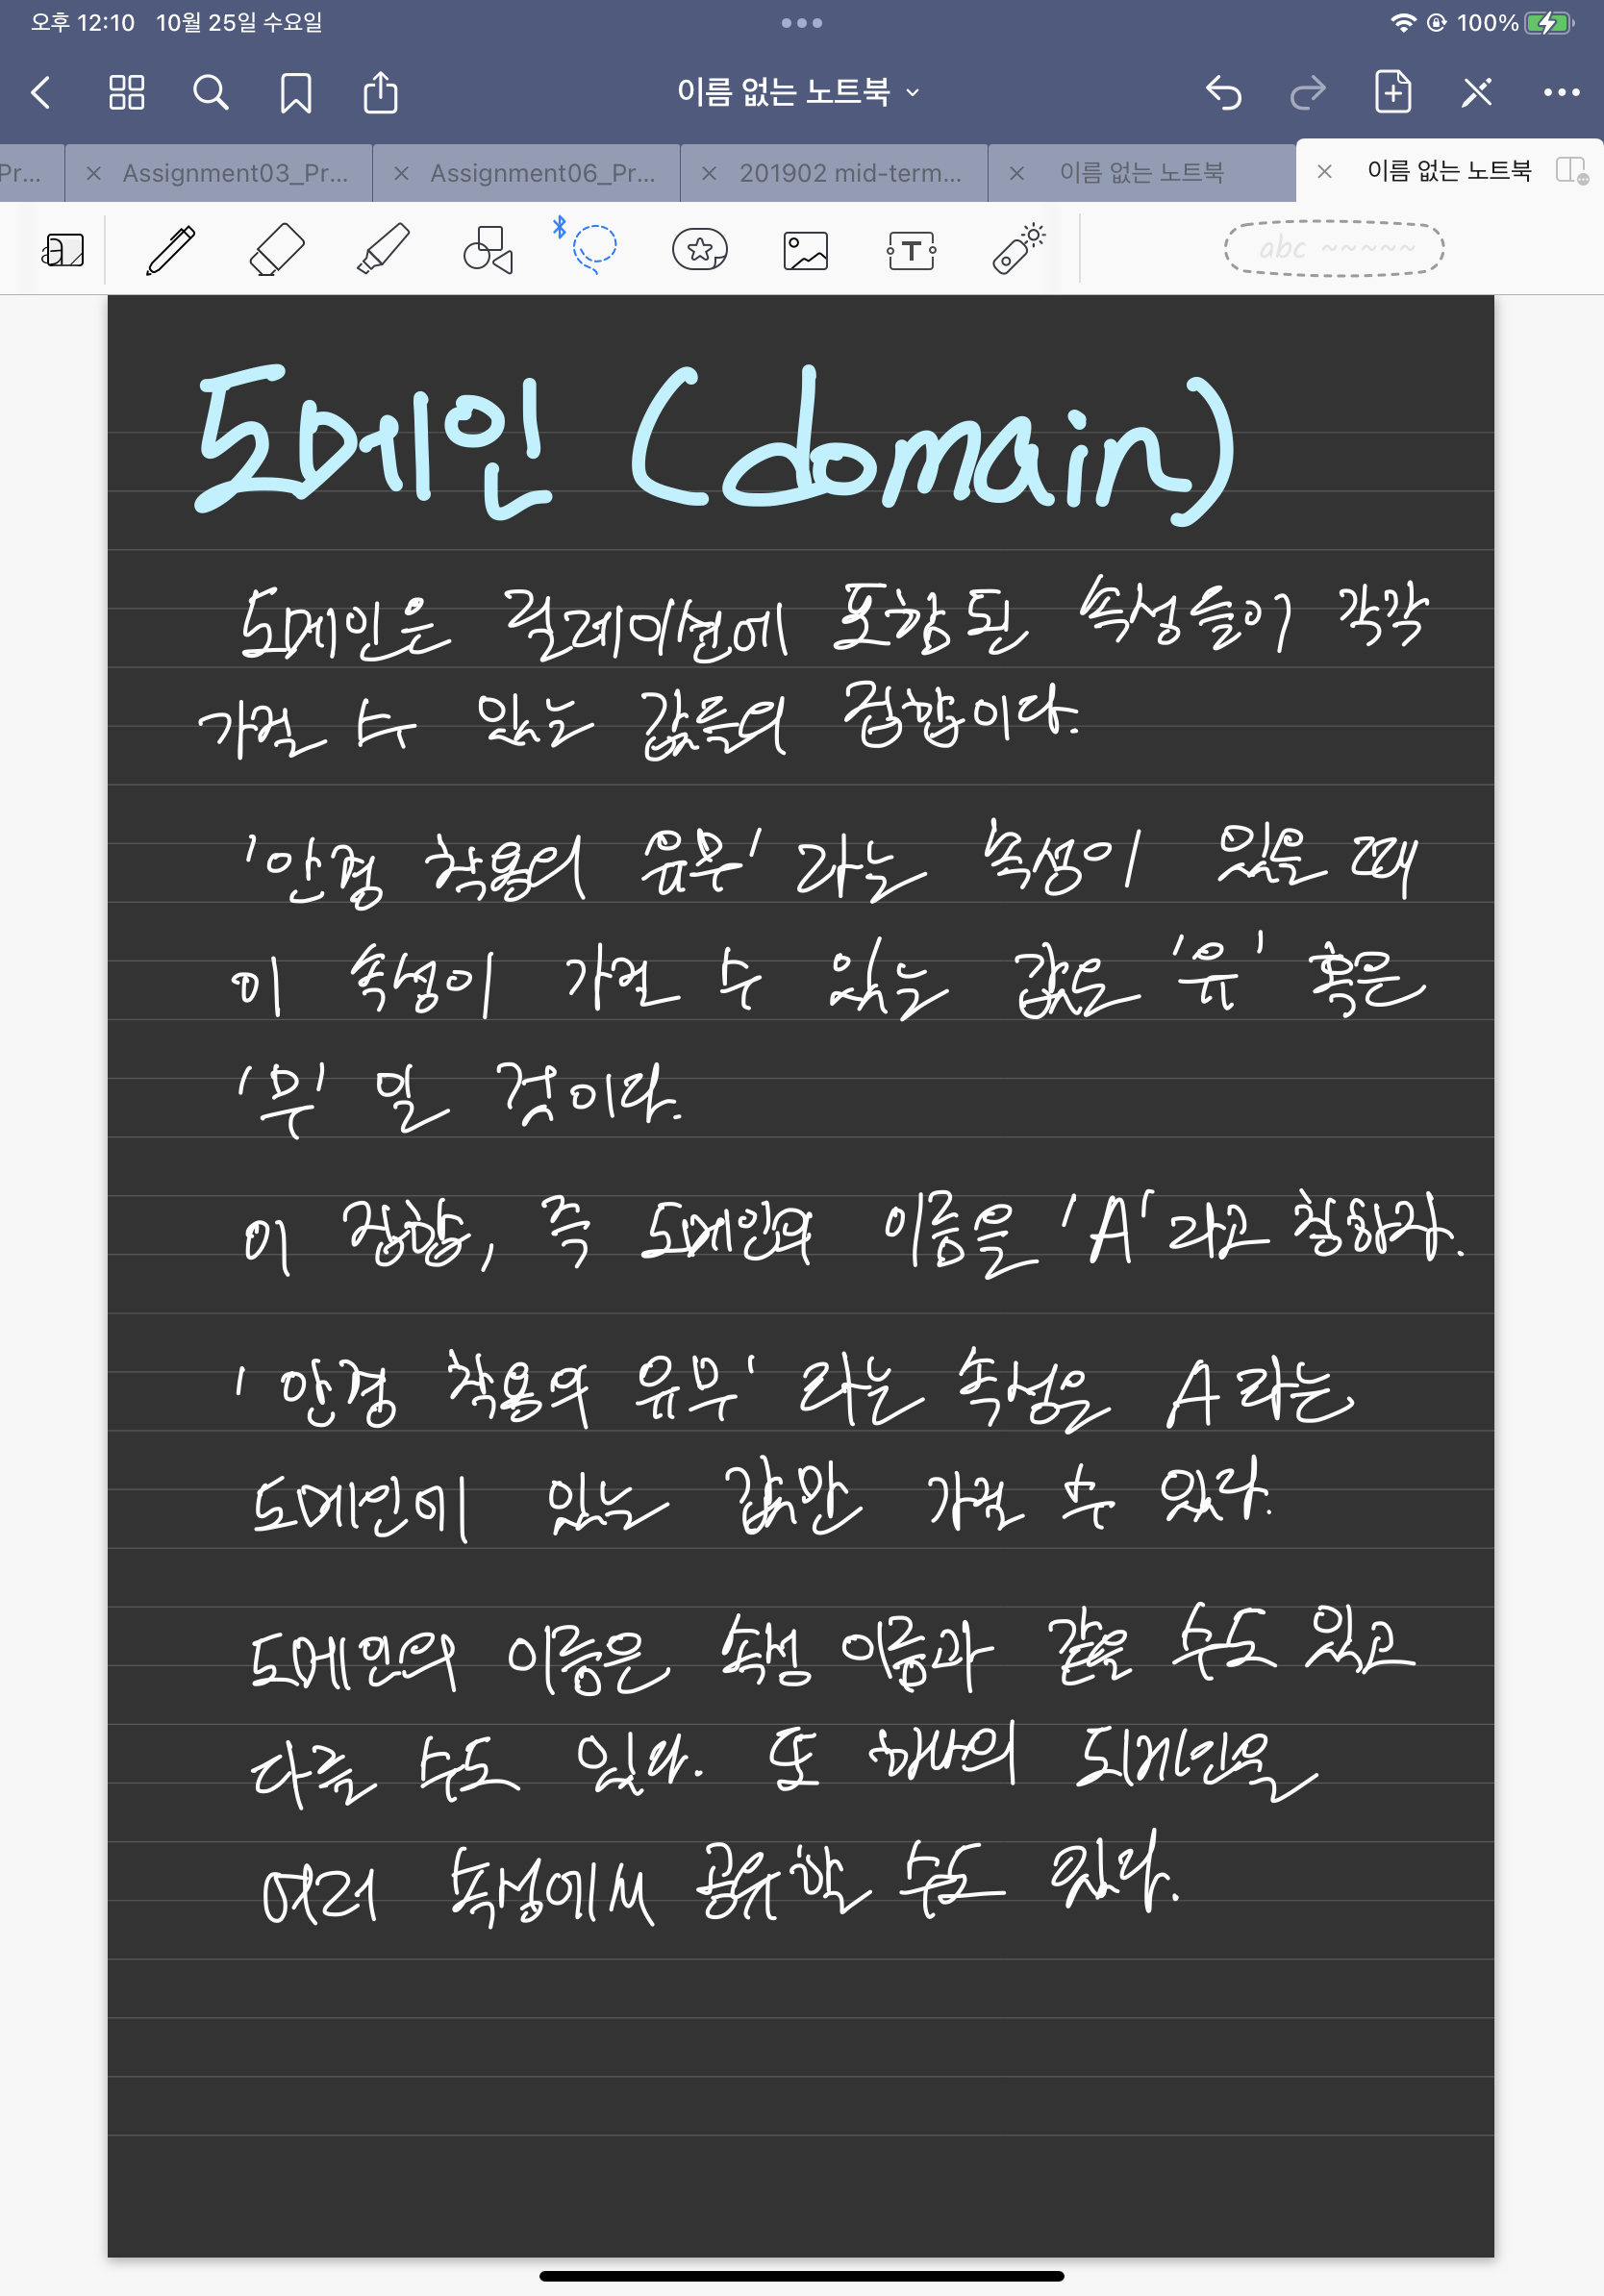 오후 12:10 10월 25일 수요일 100%
이름 없는 노트북
Pr... Assignment03_Pr... Assignment06_Pr... 201902 mid-term... 이름 없는 노트북 이름 없는 노트북
T abc ~~~~~
도메인 (domain)
도메인은 릴레이션에 포함된 속성들이 각각
가질 수 있는 값들의 집합이다.
'안경 착용의 유무' 라는 속성이 있을 때
이 속성이 가질 수 있는 값은 '유' 혹은
'무' 일 것이다.
이 집합, 즉 도메인의 이름을 'A' 라고 칭하자.
'안경 착용의 유무' 라는 속성은 A 라는
도메인에 있는 값만 가질 수 있다.
도메인의 이름은 속성 이름과 같을 수도 있고
다를 수도 있다. 또 하나의 도메인을
여러 속성에서 공유할 수도 있다.